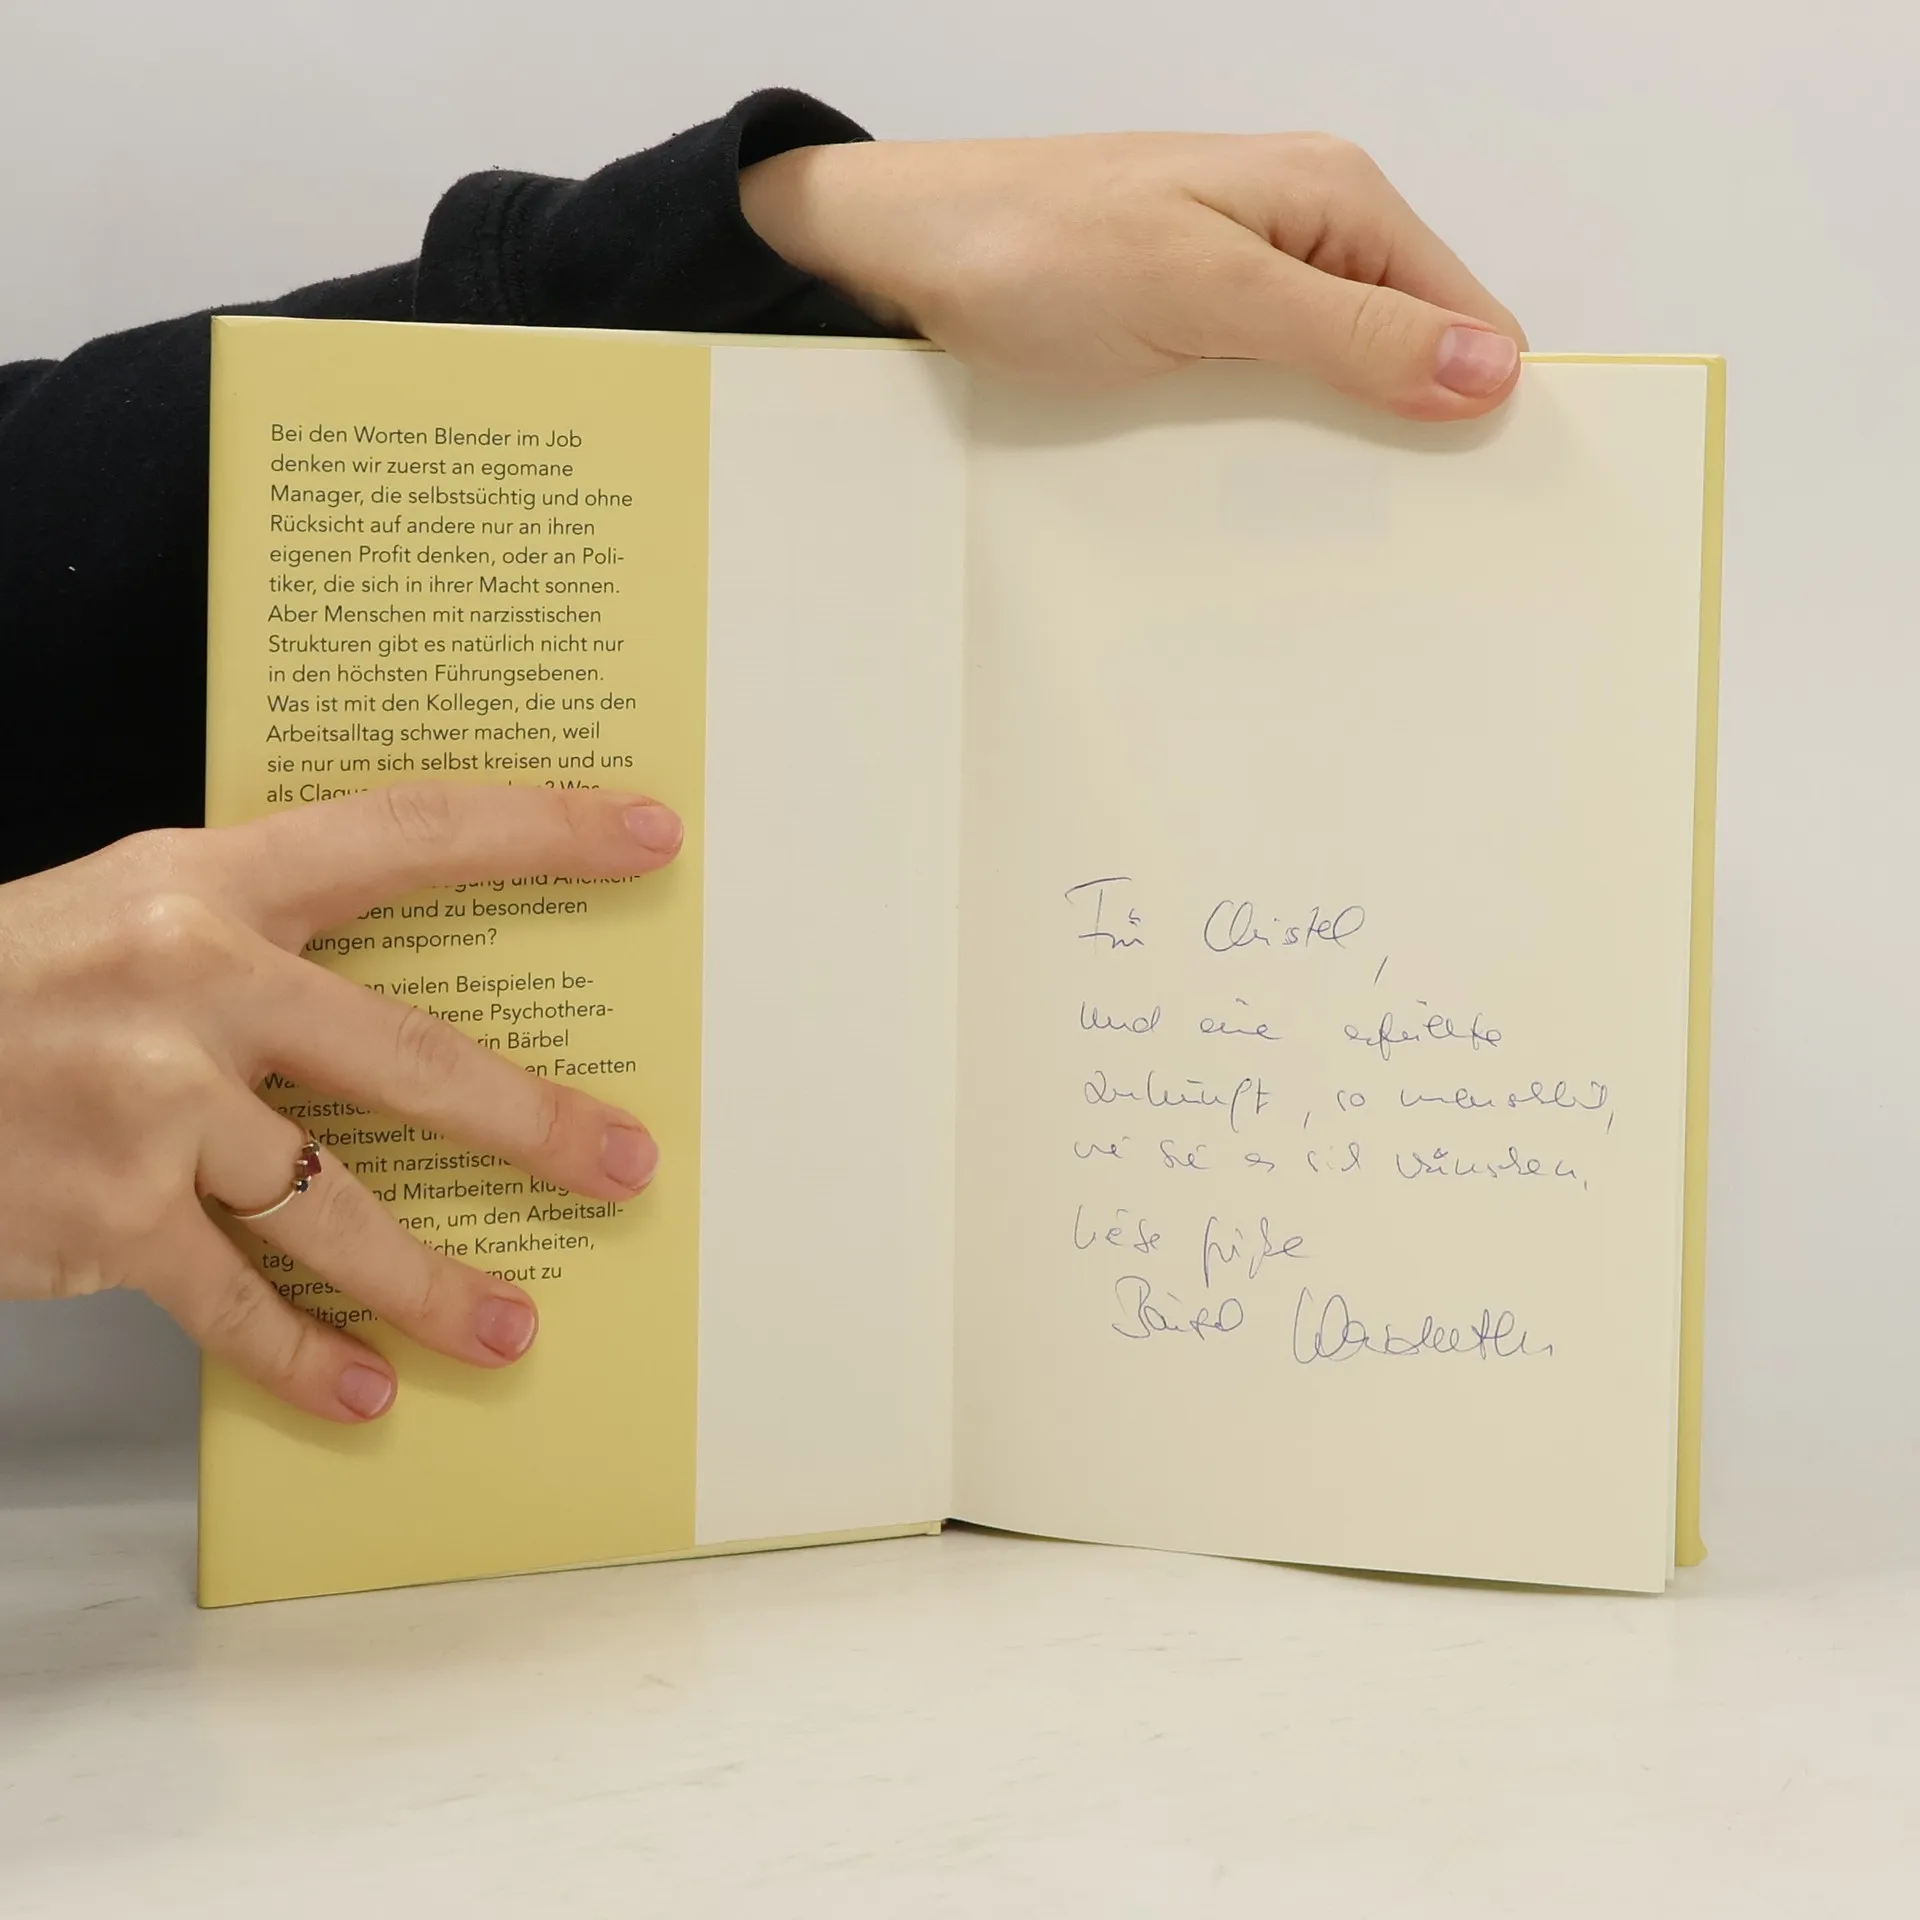 Bei den Worten Blender im Job
denken wir zuerst an egomane
Manager, die selbstsüchtig und ohne
Rücksicht auf andere nur an ihren
eigenen Profit denken, oder an Poli-
tiker, die sich in ihrer Macht sonnen.
Aber Menschen mit narzisstischen
Strukturen gibt es natürlich nicht nur
in den höchsten Führungsebenen.
Was ist mit den Kollegen, die uns den
Arbeitsalltag schwer machen, weil
sie nur um sich selbst kreisen und uns
als ? Was
und
und zu besonderen
anspornen?
vielen Beispielen be-
Psychothera-
Bärbel
Facetten
mit narzisstisch
Mitarbeitern
um den Arbeitsall-
tag Krankheiten,
zu
Für Christel,
und eine erfüllte
Zukunft, so menschlich,
wie Sie es sich wünschen,
liebe Grüße
Bärbel Wardetzki